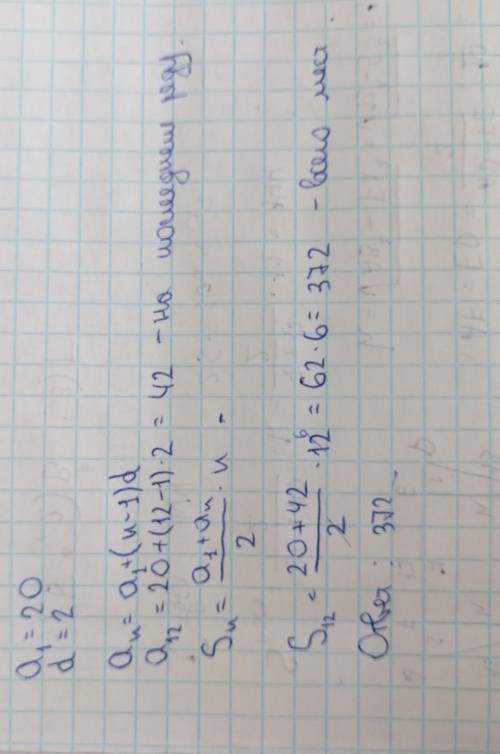 a₁ = 20
d = 2
aₙ = a₁ + (n-1)d
a₁₂ = 20 + (12-1)·2 = 42 - на последнем ряду.
Sₙ = (a₁ + aₙ)/2 · n -
S₁₂ = (20 + 42)/2 · 12⁶ = 62 · 6 = 372 - всего мест
Ответ: 372